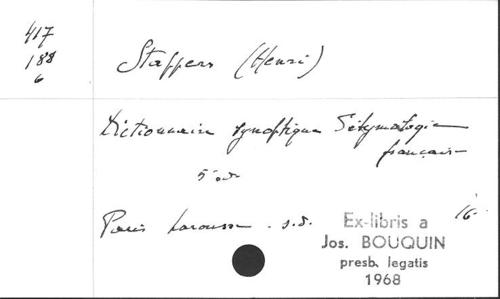 417
188
6
Stappers (Henri)
Dictionnaire synoptique d'étymologie
française
5e éd.
Paris Larousse . s.d. 16°
Ex-libris a
Jos. BOUQUIN
presb. legatis
1968